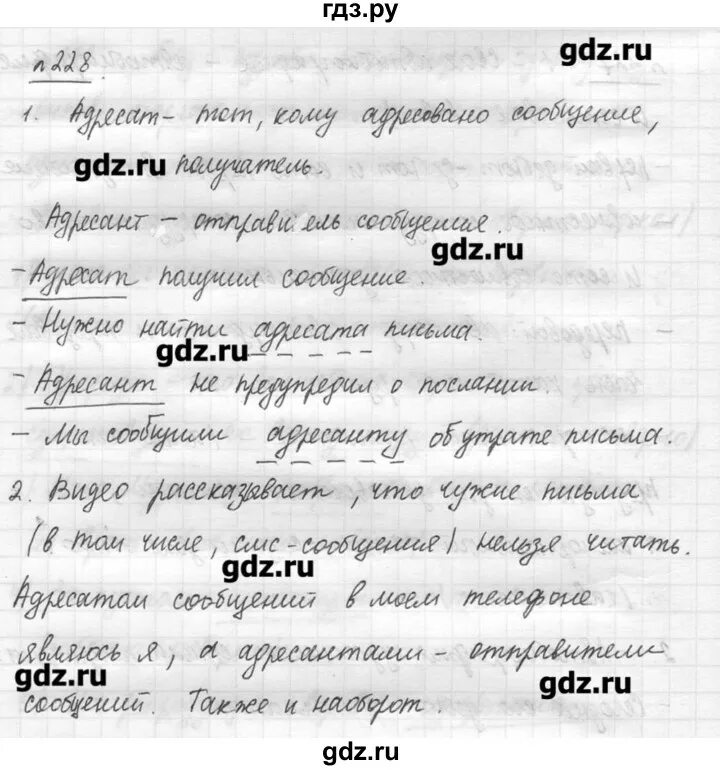 гдз.ру
gdz.ru
n 228.
1. Адресат - тот, кому адресовано сообщение,
gdz.ru получатель
Адресант - отправи ель сообщения.
gdz.ru
- Адресат получил сообщение.
- Нужно найти адресата письма.
gdz.ru
- Адресант не предупредил о послании.
- Мы сообщили адресанту об утрате письма.
2. Видео рассказывает, что чужие письма
(в том числе, смс-сообщения) нельзя читать.
gdz.ru
Адресатом сообщений в моем телефоне
являюсь я, а адресантами - отправители
gdz.ru
gdz.ru
сообщений. Также и наоборот.
gdz.ru